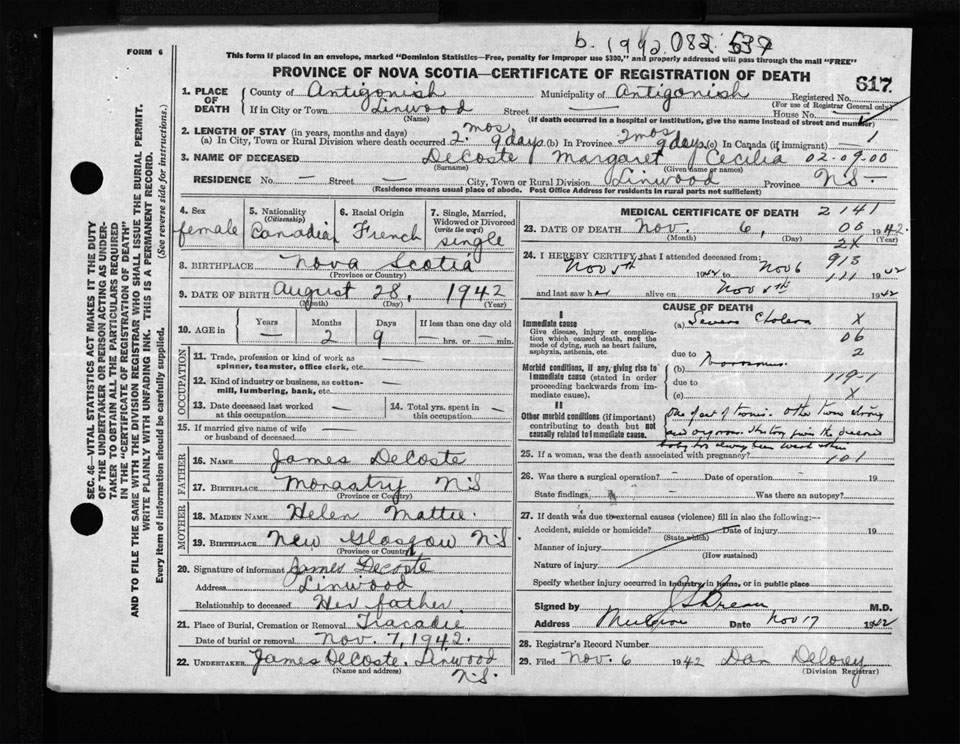 b. 1942. 082. 537
FORM 6
This form if placed in an envelope, marked "Dominion Statistics—Free, penalty for improper use $300," and properly addressed will pass through the mail "FREE"
PROVINCE OF NOVA SCOTIA—CERTIFICATE OF REGISTRATION OF DEATH
617
1. PLACE OF DEATH County of Antigonish Municipality of Antigonish Registered No.
(For use of Registrar General only)
If in City or Town Linwood Street — House No.
(Name) (If death occurred in a hospital or institution, give the name instead of street and number)
2. LENGTH OF STAY (in years, months and days)
(a) In City, Town or Rural Division where death occurred 2 mos 9 days (b) In Province 2 mos 9 days (c) In Canada (if immigrant) —
3. NAME OF DECEASED DeCoste Margaret Cecilia 02-09-00
(Surname) (Given name or names)
RESIDENCE No. — Street — City, Town or Rural Division Linwood Province NS
(Residence means usual place of abode. Post Office Address for residents in rural parts not sufficient)
4. Sex female
5. Nationality (Citizenship) Canadian
6. Racial Origin French
7. Single, Married, Widowed or Divorced (write the word) single
8. BIRTHPLACE Nova Scotia
(Province or Country)
9. DATE OF BIRTH August 28, 1942
(Month) (Day) (Year)
10. AGE in Years — Months 2 Days 9 If less than one day old — hrs. or — min.
OCCUPATION
11. Trade, profession or kind of work as spinner, teamster, office clerk, etc. —
12. Kind of industry or business, as cotton-mill, lumbering, bank, etc. —
13. Date deceased last worked at this occupation —
14. Total yrs. spent in this occupation —
15. If married give name of wife or husband of deceased —
FATHER
16. NAME James DeCoste
17. BIRTHPLACE Monastry NS
(Province or Country)
MOTHER
18. MAIDEN NAME Helen Mattie
19. BIRTHPLACE New Glasgow NS
(Province or Country)
20. Signature of informant James Decoste
Address Linwood
Relationship to deceased Her father
21. Place of Burial, Cremation or Removal Tracadie
Date of burial or removal Nov. 7, 1942.
22. UNDERTAKER James DeCoste. Linwood
(Name and address) N.S.
MEDICAL CERTIFICATE OF DEATH 2141
23. DATE OF DEATH Nov. 6, 1942.
(Month) (Day) (Year)
06
2X
24. I HEREBY CERTIFY that I attended deceased from: 913
Nov 5th 1942 to Nov 6 1942
111
and last saw her alive on Nov 5th 1942
CAUSE OF DEATH
I
Immediate cause (a) Severe Cholera X
Give disease, injury or complication which caused death, not the mode of dying, such as heart failure, asphyxia, asthenia, etc.
06
2
due to
Morbid conditions, if any, giving rise to immediate cause (stated in order proceeding backwards from immediate cause). (b)
due to 119-1
(c) X
II
Other morbid conditions (if important) contributing to death but not causally related to immediate cause.
25. If a woman, was the death associated with pregnancy?
101
26. Was there a surgical operation? Date of operation 19
State findings Was there an autopsy?
27. If death was due to external causes (violence) fill in also the following:—
Accident, suicide or homicide? Date of injury 19
(State which)
Manner of injury
(How sustained)
Nature of injury
Specify whether injury occurred in industry, in home, or in public place
Signed by M.D.
Address Mulgrave Date Nov 17 1942
28. Registrar's Record Number
29. Filed Nov. 6 1942 Dan Delorey
(Division Registrar)
SEC. 46—VITAL STATISTICS ACT MAKES IT THE DUTY
OF THE UNDERTAKER OR PERSON ACTING AS UNDER-
TAKER TO OBTAIN ALL THE PARTICULARS REQUIRED
IN THE "CERTIFICATE OF REGISTRATION OF DEATH"
AND TO FILE THE SAME WITH THE DIVISION REGISTRAR WHO SHALL ISSUE THE BURIAL PERMIT.
WRITE PLAINLY WITH UNFADING INK. THIS IS A PERMANENT RECORD.
Every item of information should be carefully supplied. (See reverse side for instructions.)